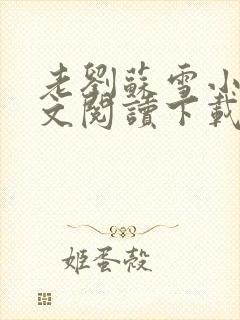 老劉蘇雪小
文閱讀下載
姬蛋殼